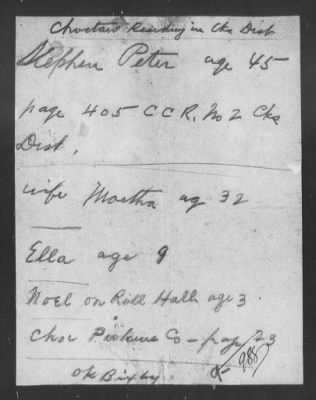 Choctaw Residing in Cks Dist
Stephen Peter age 45
page 405 CCR. No 2 Cks
Dist.
wife Martha ag 32
Ella age 9
Noel on Roll Hall age 3.
Choc Pickens Co - page 23
988
OK Bixby